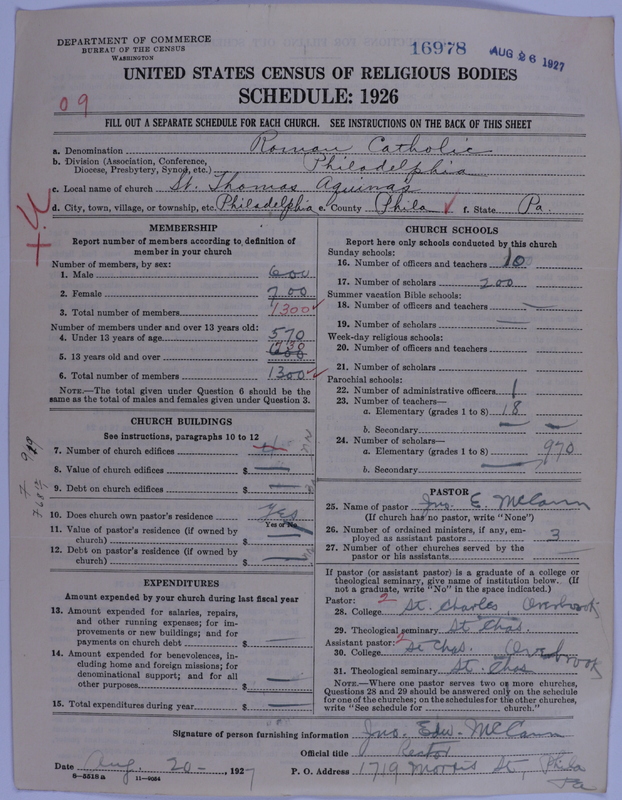 DEPARTMENT OF COMMERCE
BUREAU OF THE CENSUS
WASHINGTON
16978 AUG 26 1927
UNITED STATES CENSUS OF RELIGIOUS BODIES
SCHEDULE: 1926
09
FILL OUT A SEPARATE SCHEDULE FOR EACH CHURCH. SEE INSTRUCTIONS ON THE BACK OF THIS SHEET
a. Denomination Roman Catholic
b. Division (Association, Conference, Diocese, Presbytery, Synod, etc.) Philadelphia
c. Local name of church St. Thomas Aquinas
d. City, town, village, or township, etc. Philadelphia e. County Phila f. State Pa.
MEMBERSHIP
Report number of members according to definition of
member in your church
Number of members, by sex:
1. Male 600
2. Female 700
3. Total number of members 1300
Number of members under and over 13 years old:
4. Under 13 years of age 570
5. 13 years old and over
6. Total number of members 1300
NOTE.—The total given under Question 6 should be the
same as the total of males and females given under Question 3.
CHURCH BUILDINGS
See instructions, paragraphs 10 to 12
7. Number of church edifices
8. Value of church edifices $
9. Debt on church edifices $
10. Does church own pastor's residence Yes
Yes or No
11. Value of pastor's residence (if owned by
church) $
12. Debt on pastor's residence (if owned by
church) $
EXPENDITURES
Amount expended by your church during last fiscal year
13. Amount expended for salaries, repairs,
and other running expenses; for im-
provements or new buildings; and for
payments on church debt $
14. Amount expended for benevolences, in-
cluding home and foreign missions; for
denominational support; and for all
other purposes $
15. Total expenditures during year $
CHURCH SCHOOLS
Report here only schools conducted by this church
Sunday schools:
16. Number of officers and teachers 10
17. Number of scholars 200
Summer vacation Bible schools:
18. Number of officers and teachers
19. Number of scholars
Week-day religious schools:
20. Number of officers and teachers
21. Number of scholars
Parochial schools:
22. Number of administrative officers 1
23. Number of teachers—
a. Elementary (grades 1 to 8) 18
b. Secondary
24. Number of scholars—
a. Elementary (grades 1 to 8) 970
b. Secondary
PASTOR
25. Name of pastor Jno. E. McCann
(If church has no pastor, write "None")
26. Number of ordained ministers, if any, em-
ployed as assistant pastors 3
27. Number of other churches served by the
pastor or his assistants
If pastor (or assistant pastor) is a graduate of a college or
theological seminary, give name of institution below. (If
not a graduate, write "No" in the space indicated.)
Pastor: 2
28. College St. Charles, Overbrook
29. Theological seminary St. Chas.
Assistant pastor: 2
30. College St Chas. Overbrook
31. Theological seminary St. Chas
NOTE.—Where one pastor serves two or more churches,
Questions 28 and 29 should be answered only on the schedule
for one of the churches; on the schedules for the other churches,
write "See schedule for church."
Signature of person furnishing information Jno. Edw. McCann
Official title Rector
Date Aug. 20 - , 1927 P. O. Address 1719 Morris St, Phila
Pa
8-5518a 11-9054